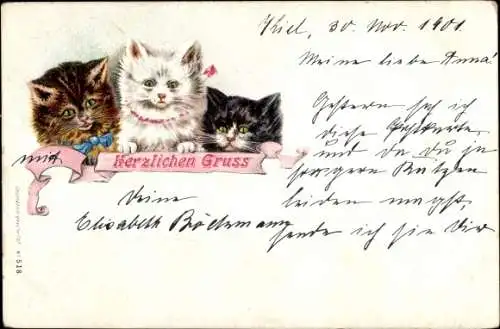 Kiel, 30. Nov. 1901.
Meine liebe Anna.
Gestern sah ich
diese Postkarte,
und da du ja
so gern Katzen
leiden magst,
sende ich sie Dir
mit
Herzlichen Gruss
Deine
Elisabeth
518